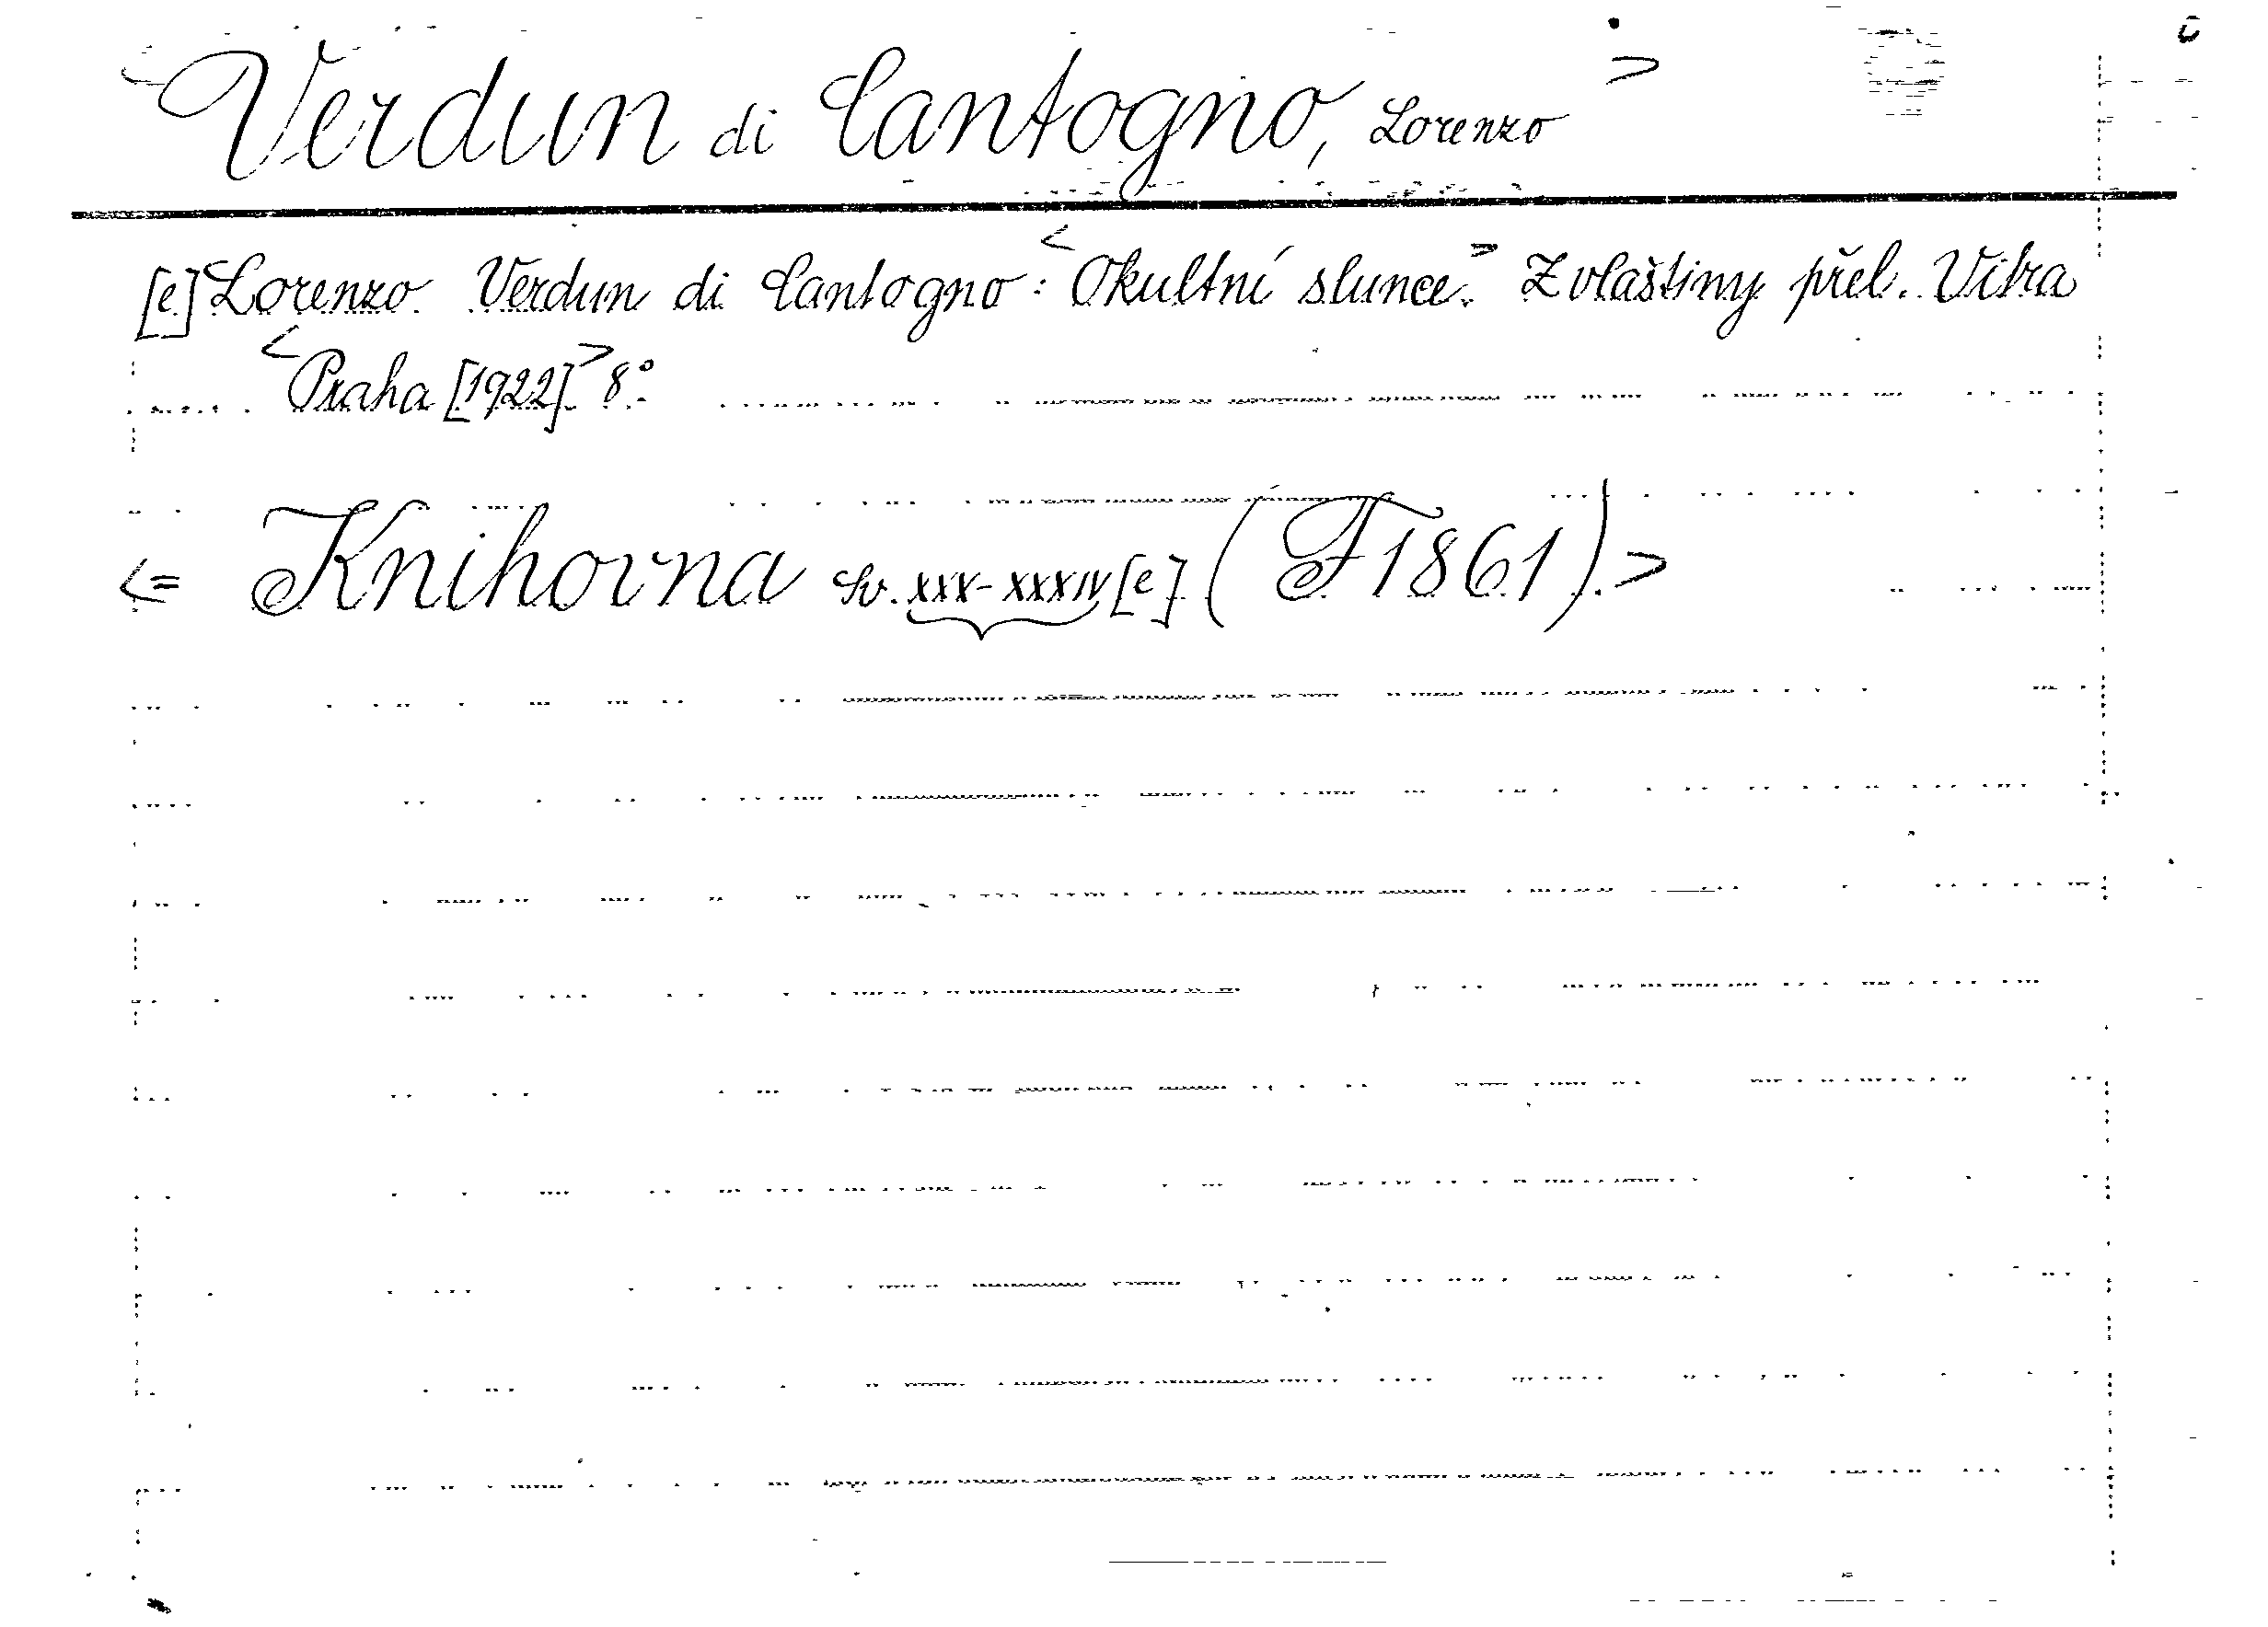 <Verdun di Cantogno, Lorenzo>
[e] Lorenzo Verdun di Cantogno: <Okultní slunce.> Z vlaštiny přel. Vitra
<Praha [1922]> 8°.
<= Knihovna sv. XXX-XXXIV [e] (F 1861).>